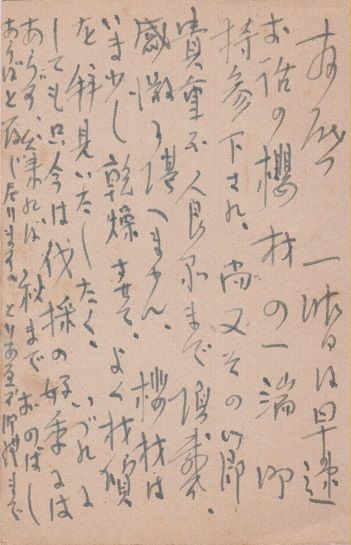 拝啓 一昨日は早速
お話の櫻材の一端御
持参下され、尚又その御
貴重な人員名まで頂戴、
感激に堪へません、櫻材は
いま少し乾燥させて、よく材質
を拝見いたしたく、いづれに
しても只今は伐採の好季には
あらず、出来れば秋までおのばし
あらばと存じ居りますが、とりあへず御禮まで